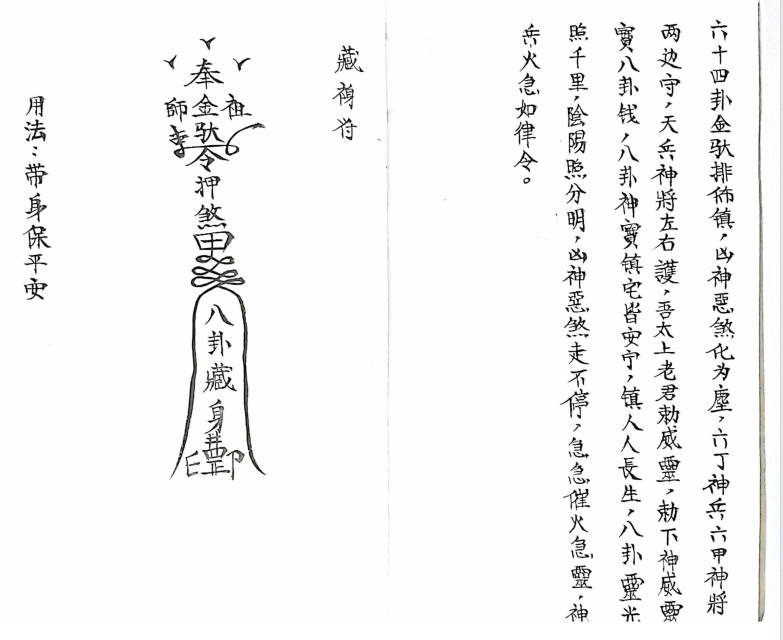 六十四卦金驮排佈镇，凶神惡煞化为塵，六丁神兵六甲神將
两边守，天兵神將左右護，吾太上老君勅威靈，勅下神威靈
寳八卦钱，八卦神寳镇宅皆安宁，镇人人長生，八卦靈光
照千里，陰陽照分明，凶神惡煞走不停，急急催火急靈，神
兵火急如律令。
藏身符
祖
奉金驮令押煞
師
八卦藏身
印
用法：带身保平安